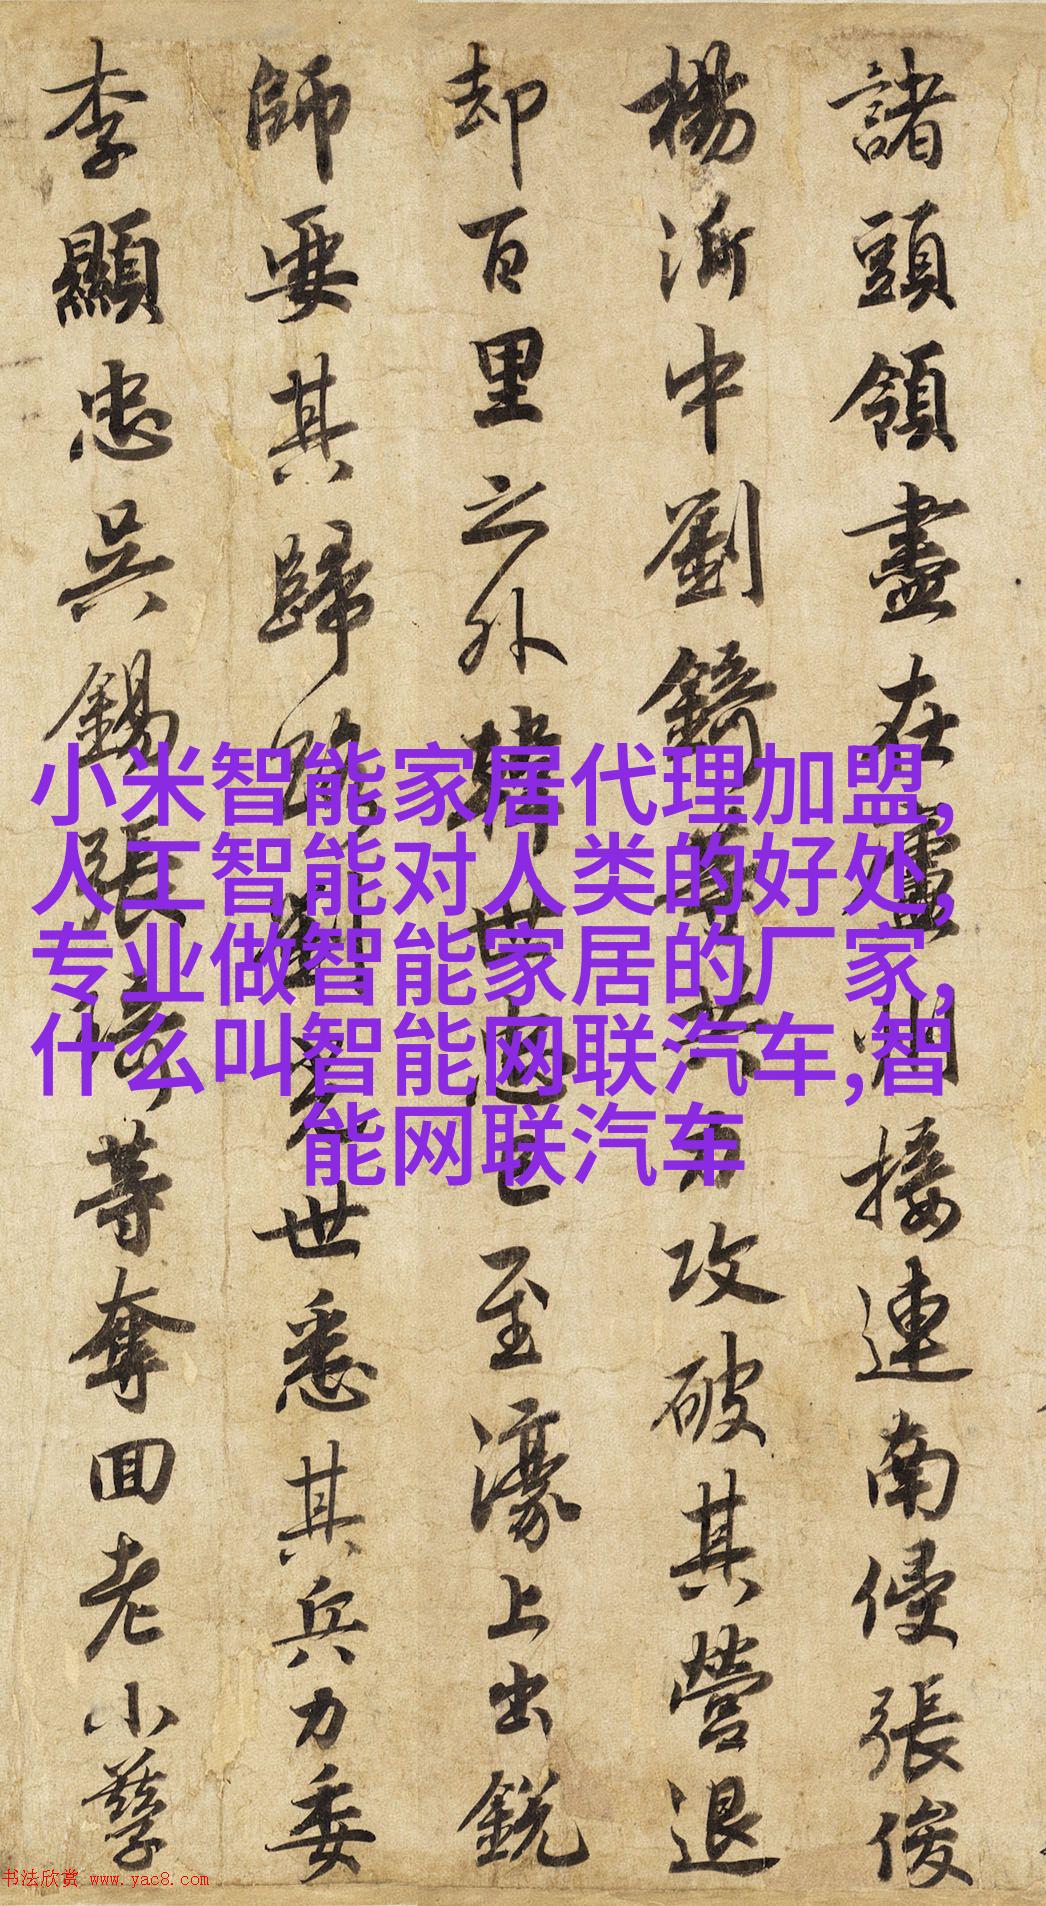 諸頭領盡在盧州接連南侵張俊
楊沂中劉錡等共力攻破其營退
却百里之外韓世忠已至濠上出銳
師要其歸路劉光世悉其兵力委
李顯忠吳錫張琦等奪回老小孳
小米智能家居代理加盟,
人工智能对人类的好处,
专业做智能家居的厂家,
什么叫智能网联汽车,智
能网联汽车
书法欣赏 www.yac8.com